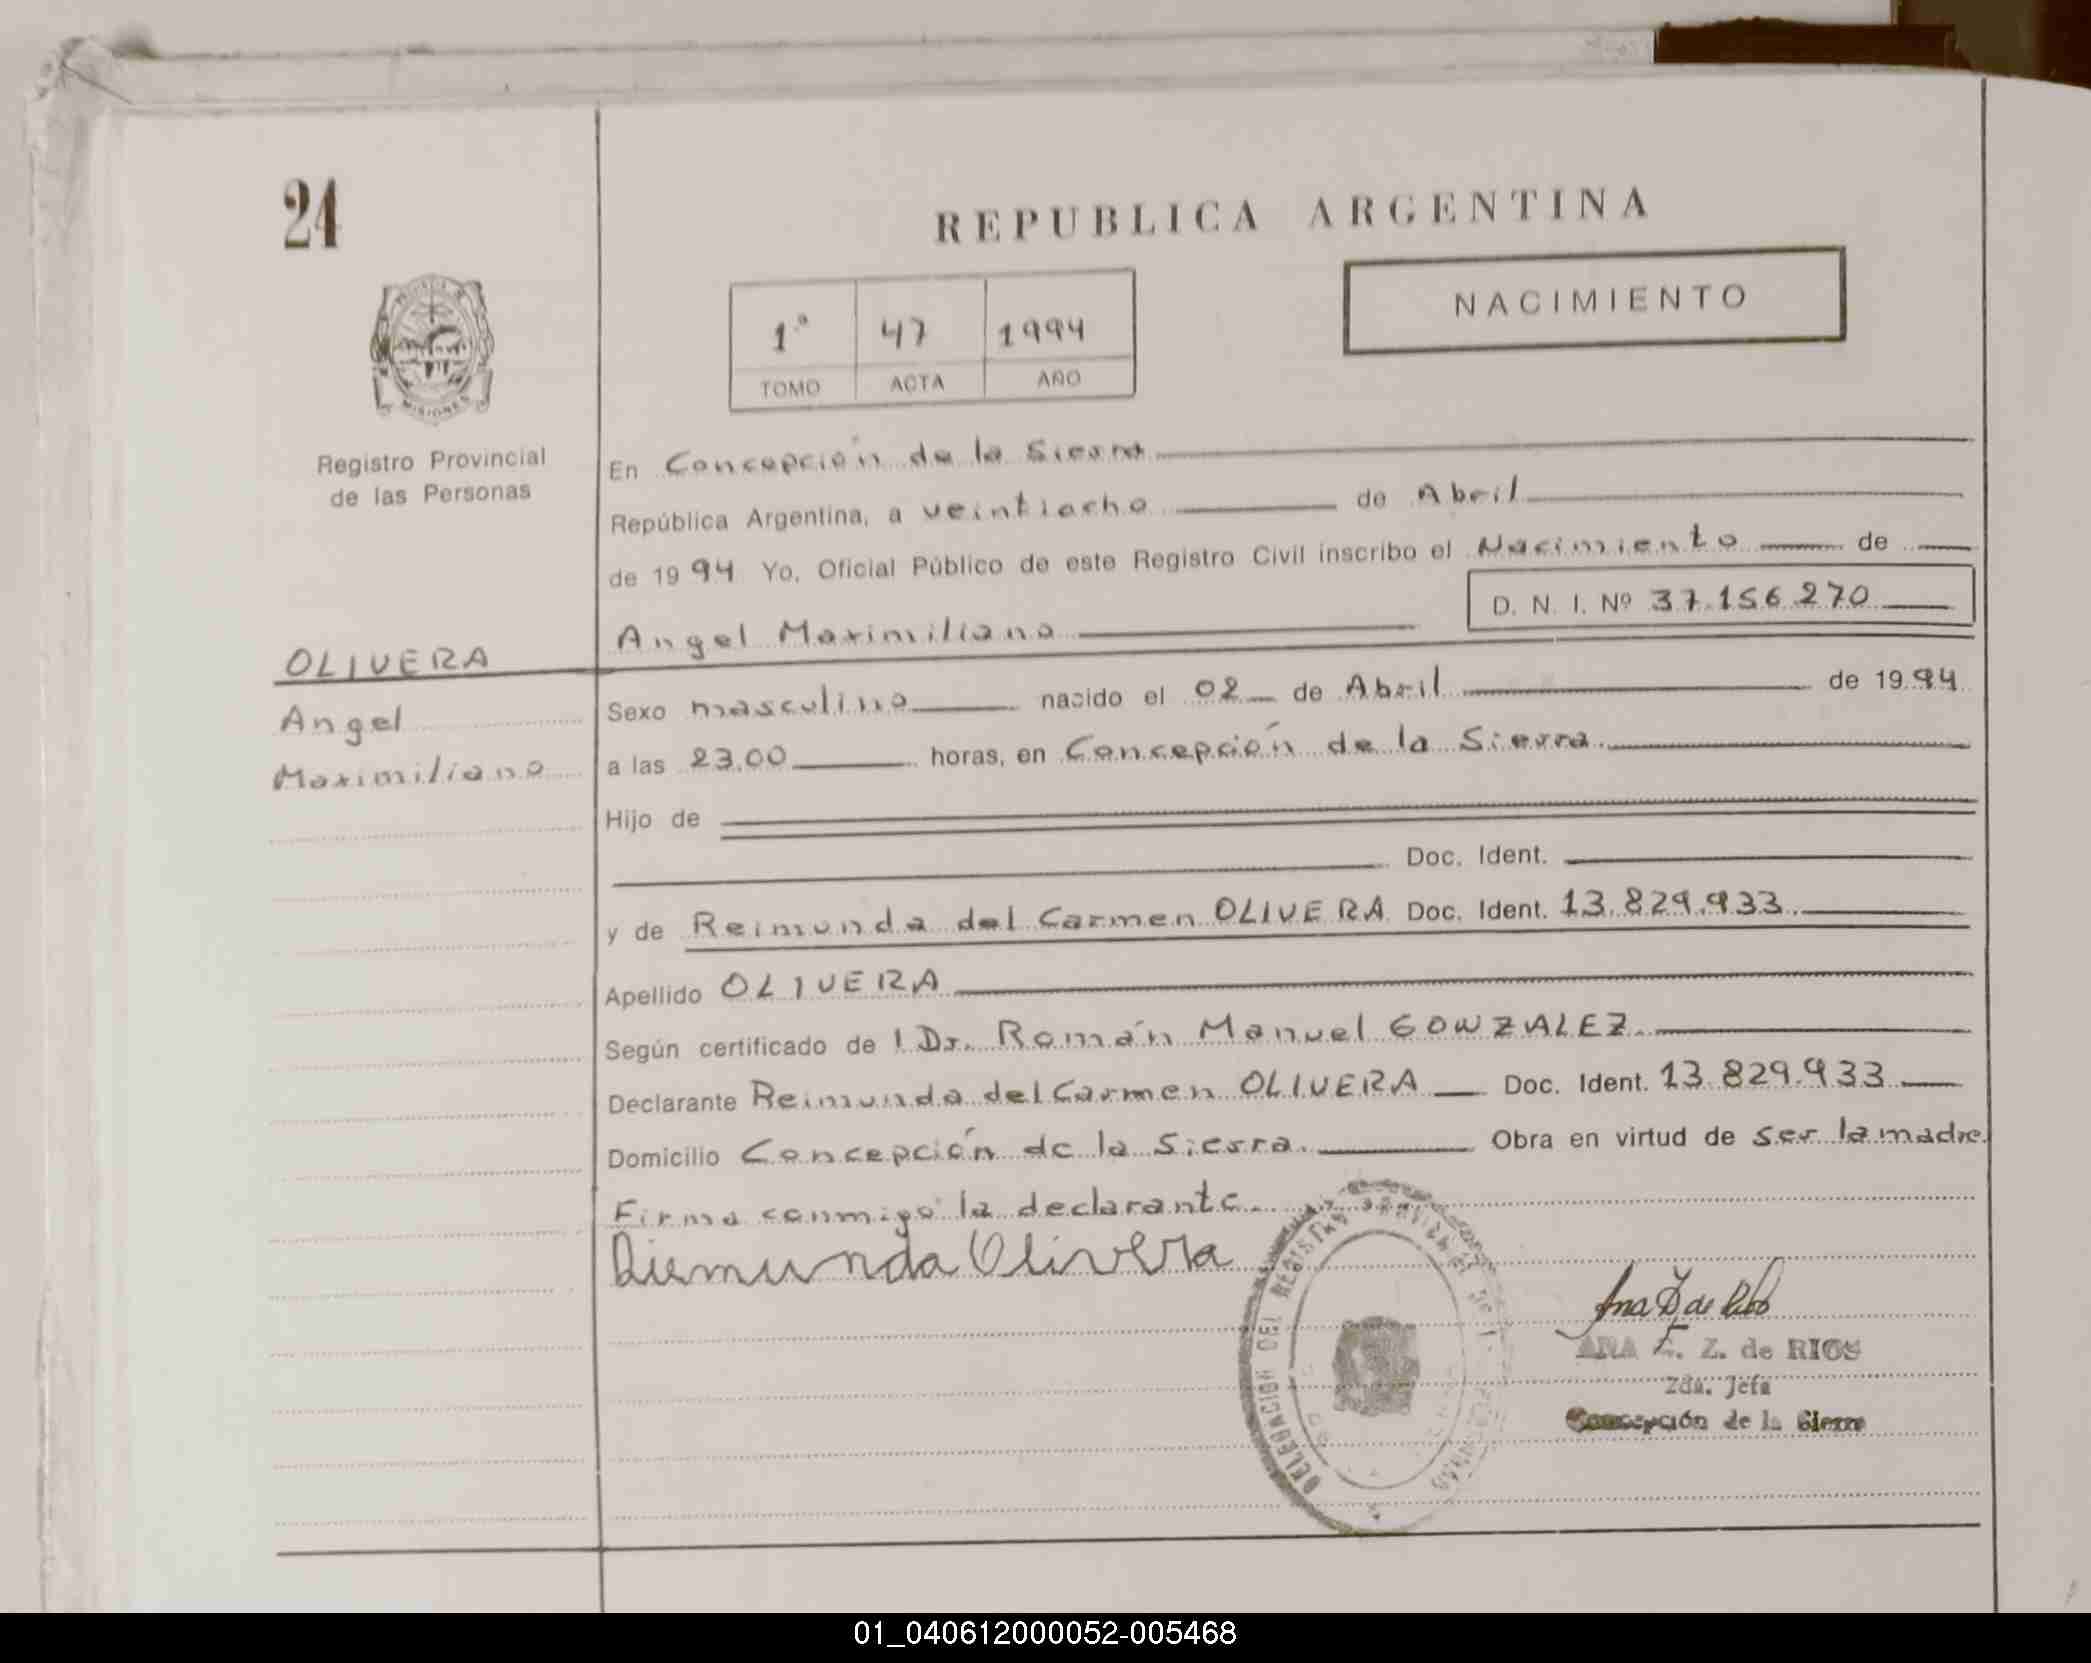 24
REPUBLICA ARGENTINA
NACIMIENTO
1º 47 1994
TOMO ACTA AÑO
MISIONES
Registro Provincial
de las Personas
OLIVERA
Angel
Maximiliano
En Concepción de la Sierra
República Argentina, a veintiocho de Abril
de 1994 Yo, Oficial Público de este Registro Civil inscribo el Nacimiento de
D. N. I. Nº 37.156.270
Angel Maximiliano
Sexo masculino nacido el 02 de Abril de 1994
a las 23.00 horas, en Concepción de la Sierra
Hijo de
Doc. Ident.
y de Reimunda del Carmen OLIVERA Doc. Ident. 13.829.933
Apellido OLIVERA
Según certificado de l Dr. Román Manuel GONZALEZ
Declarante Reimunda del Carmen OLIVERA Doc. Ident. 13.829.933
Domicilio Concepción de la Sierra Obra en virtud de ser la madre
Firma conmigo la declarante.
Riemunda Olivera
DELEGACION DEL REGISTRO PROVINCIAL DE
ANA E. Z. de RIOS
2da. Jefa
Concepción de la Sierra
01_040612000052-005468